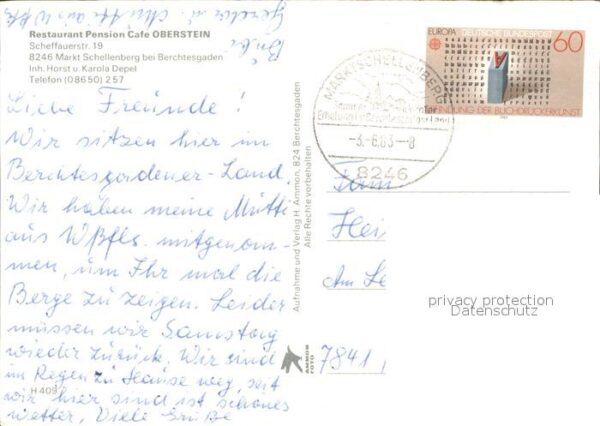 Restaurant Pension Cafe OBERSTEIN
Scheffauerstr. 19
8246 Markt Schellenberg bei Berchtesgaden
Inh. Horst u. Karola Depel
Telefon (08650) 257
Liebe Freunde!
Wir sitzen hier im
Berchtesgadener-Land.
Wir haben meine Mutti
aus Wßfls. mitgenom-
men, um Ihr mal die
Berge zu zeigen. Leider
müssen wir Samstag
wieder zurück. Wir sind
im Regen zu Hause weg, seit
wir hier sind ist schönes
Wetter. Viele Grüße
H 409
Aufnahme und Verlag H. Ammon, 824 Berchtesgaden
Alle Rechte vorbehalten
AMMON
FOTO
EUROPA DEUTSCHE BUNDESPOST
60
ERFINDUNG DER BUCHDRUCKERKUNST
MARKTSCHELLENBERG
-3.-6.83-8
8246
Fam
Hei
Am Le
7841
privacy protection
Datenschutz